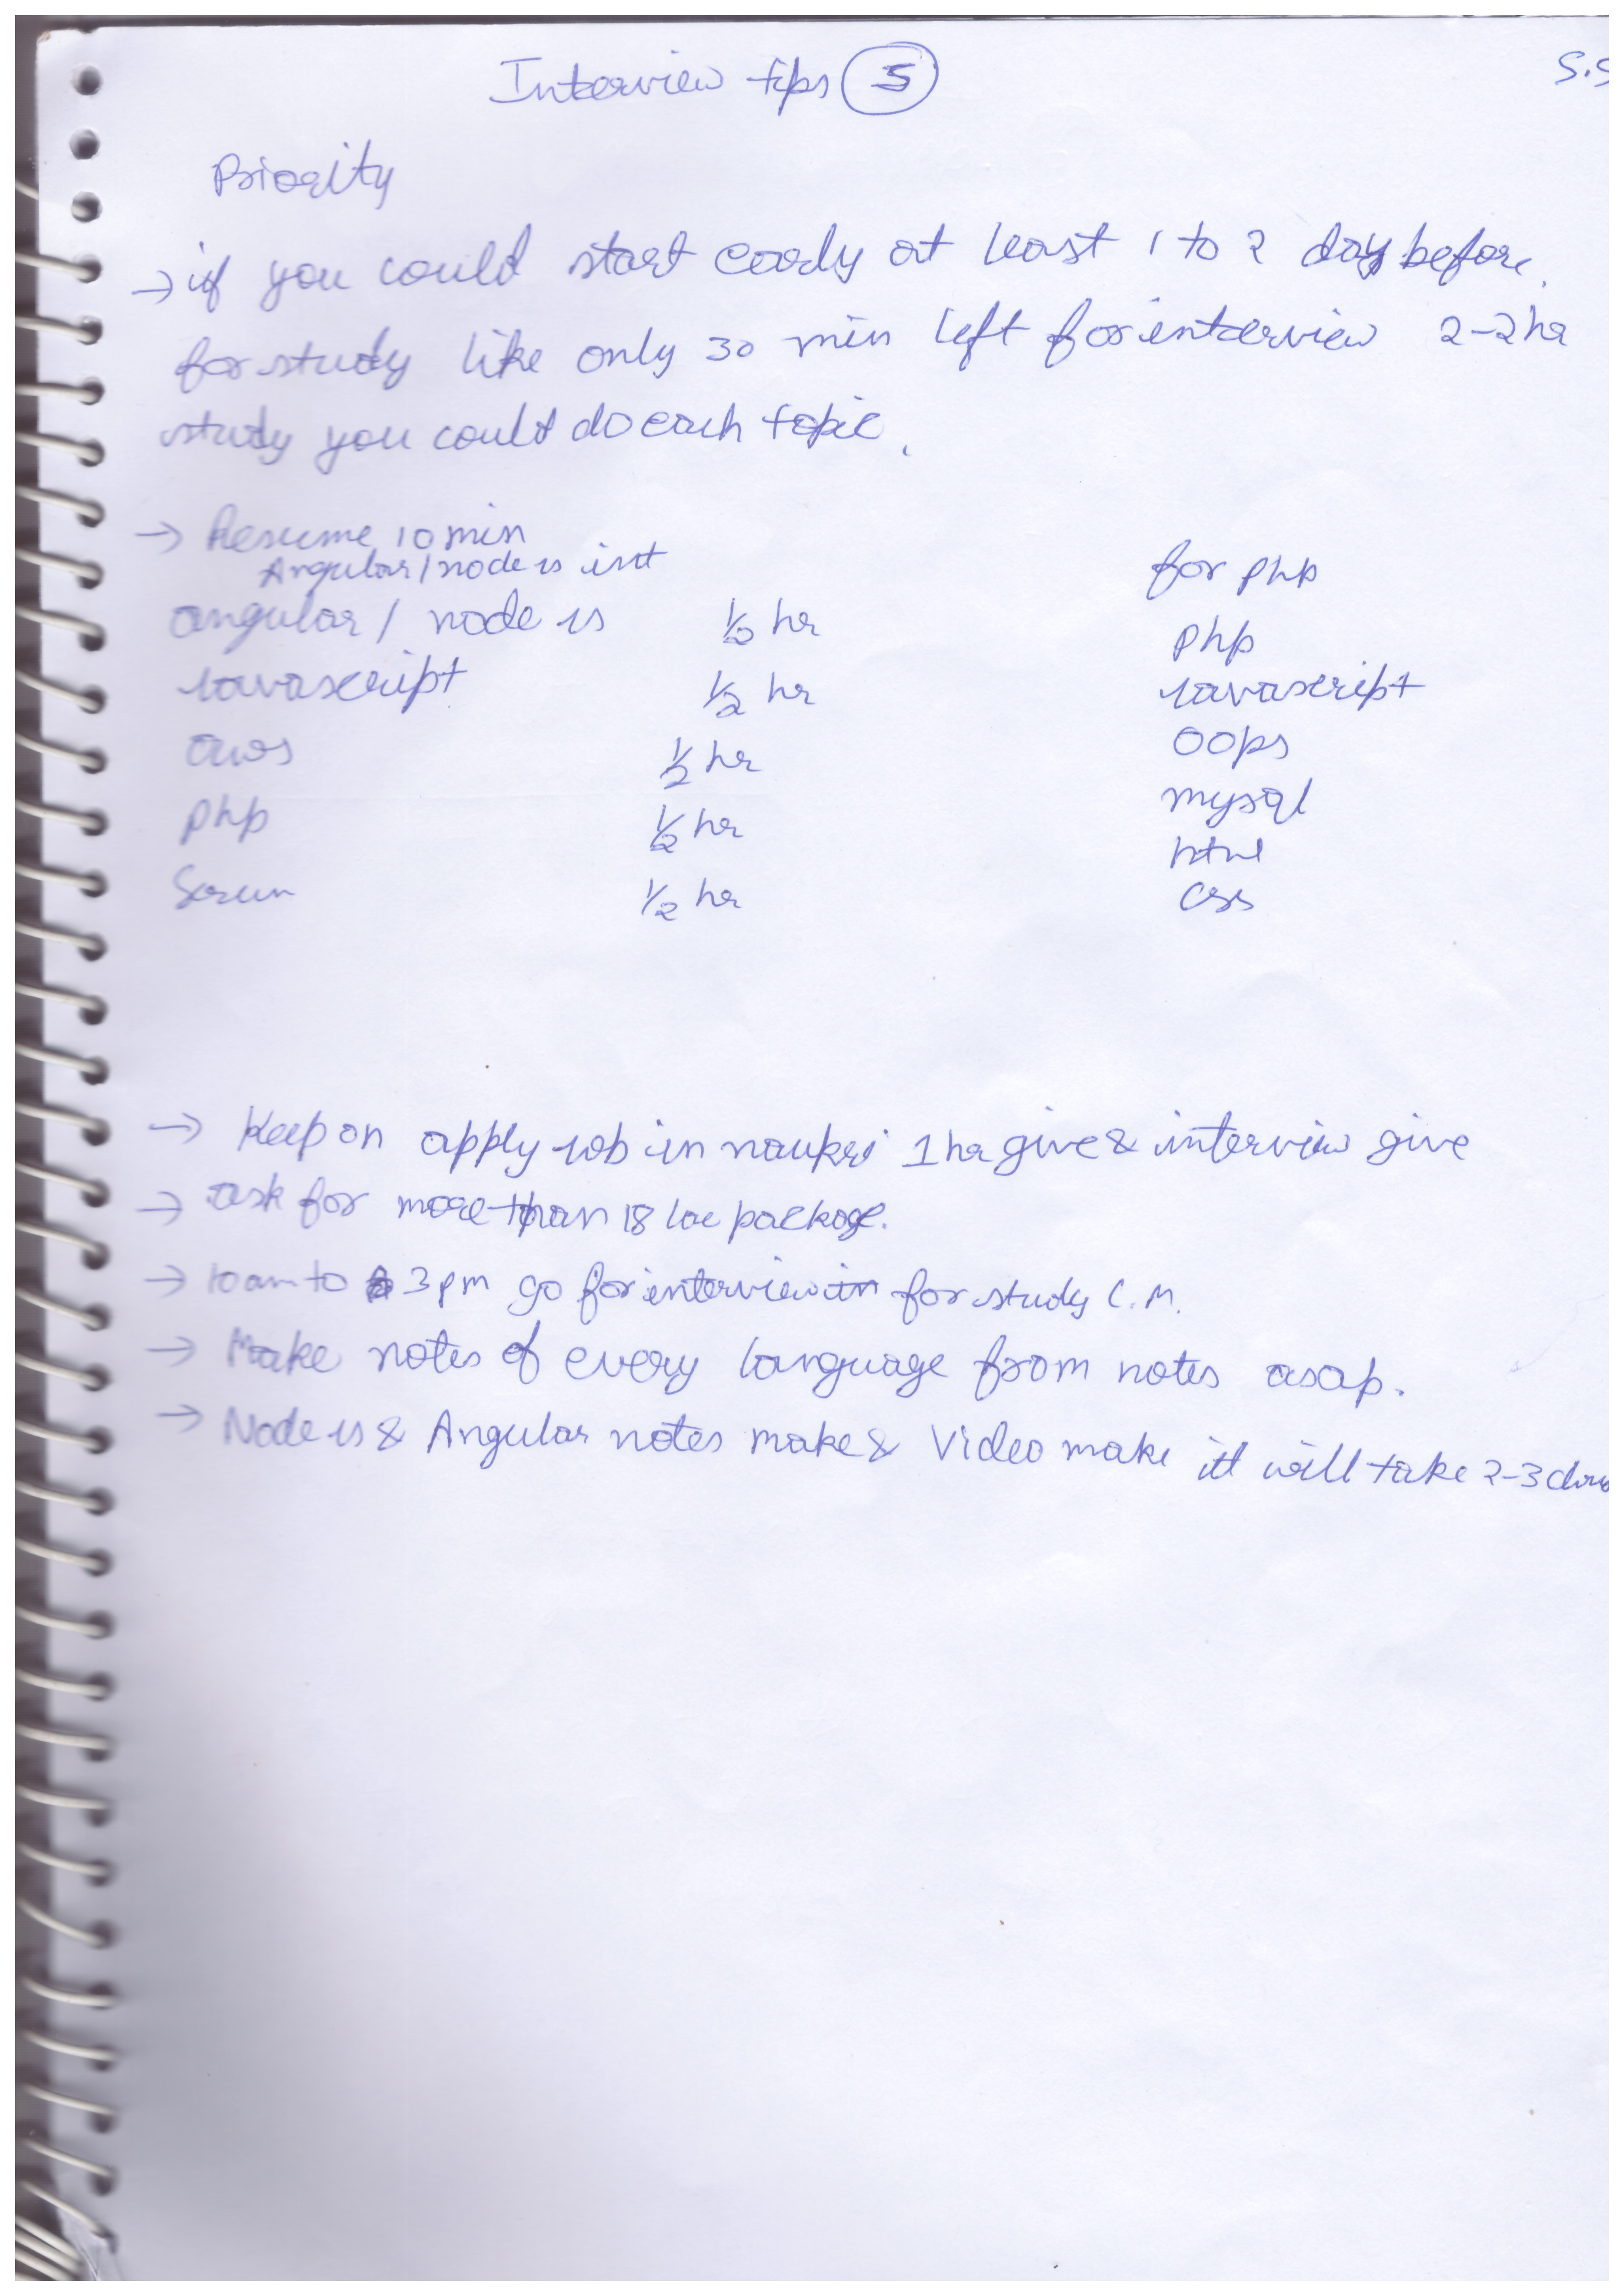 Interview tips 5
S.S
Priority
→ if you could start early at least 1 to 2 day before.
for study like only 30 min left for interview 2-2 hr
study you could do each topic.
→ Resume 10 min
Angular/node js int
for php
angular / node js 1/2 hr
php
Javascript 1/2 hr
Javascript
aws 1/2 hr
oops
php 1/2 hr
mysql
html
Scrum 1/2 hr
css
→ Keep on apply job in naukri 1 hr give & interview give
→ ask for more than 18 lac package.
→ 10 am to 3 pm go for interview for study C.M.
→ Make notes of every language from notes asap.
→ Node js & Angular notes make & Video make it will take 2-3